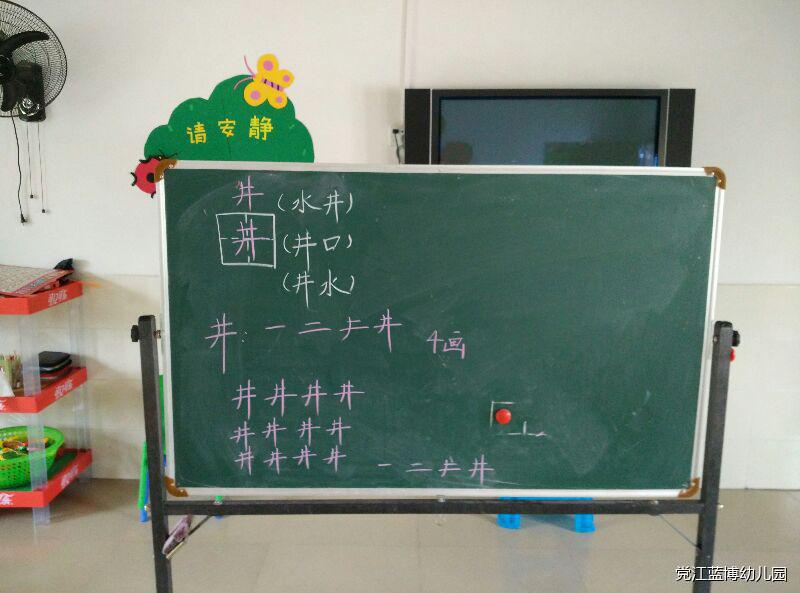 请安静
井 (水井)
井 (井口)
(井水)
井: 一 二 キ 井 4画
井 井 井 井
井 井 井 井
井 井 井 井 一 二 キ 井
党江蓝博幼儿园